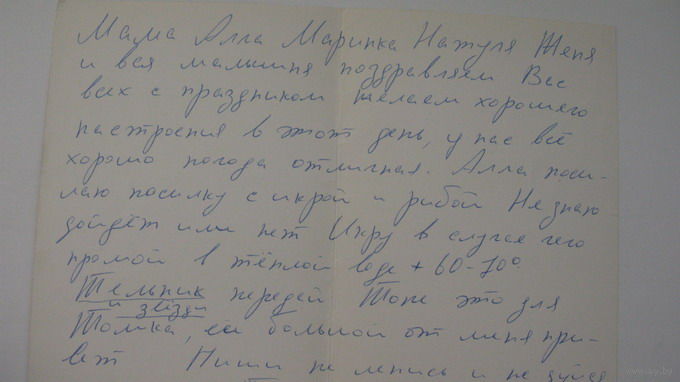 Мама Алла Маринка Натуля Женя
и вся малышня поздравляем Вас
всех с праздником желаем хорошего
настроения в этот день, у нас всё
хорошо погода отличная. Алла посы-
лаю посылку с икрой и рыбой Не знаю
дойдёт или нет Икру в случае чего
промой в тёплой воде + 60-70°
Тельник передай Тоне это для
и звёзды
Толика, ей большой от меня при-
вет Пиши не ленись и не